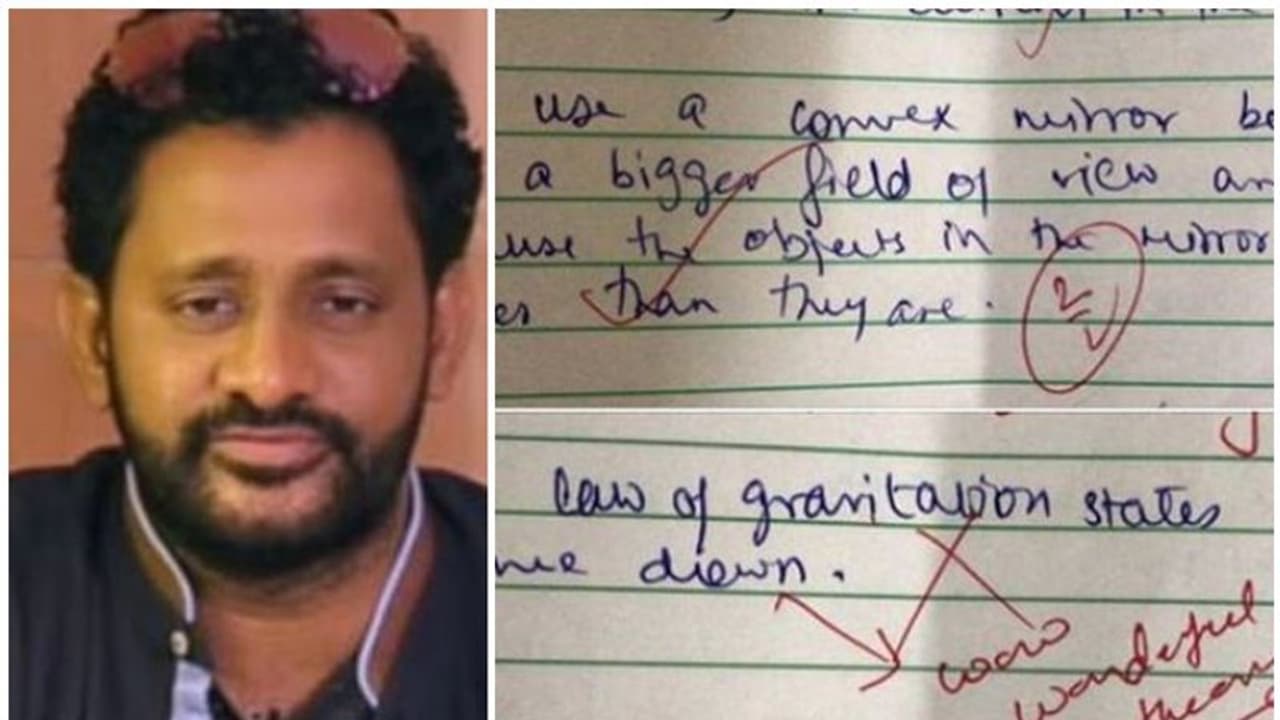 use a convex mirror be
a bigger field of view an
use the objects in the mirror
es than they are.
2
law of gravitation states
me down.
wow
wonderful